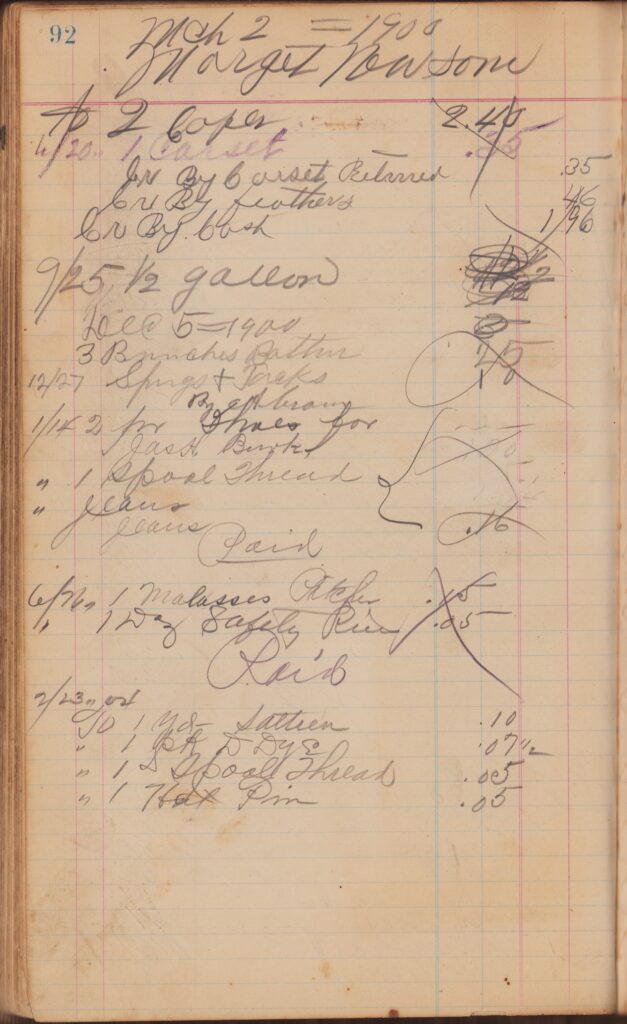 92
Mch 2 = 1900
Marget Newsom
2 Capes 2.40
4/20 1 Corset .35
Cr By Corset Returned .35
Cr By feathers .46
Cr By Cash 1/96
9/25 1/2 gallon
Dec 5 = 1900
3 Bunches Batten 25
12/27 Spurgs & Tacks 10
1/14 2 pr Shoes for
Jask
" 1 Spool Thread
" Jeans
Jeans .16
Paid
1 Malasses Pitcher .15
" 1 Doz Safety Pins .05
Paid
2/23
10 1 Yd Satteen .10
" 1 pk D Dye .07 1/2
" 1 Spool Thread .05
" 1 Hat Pin .05